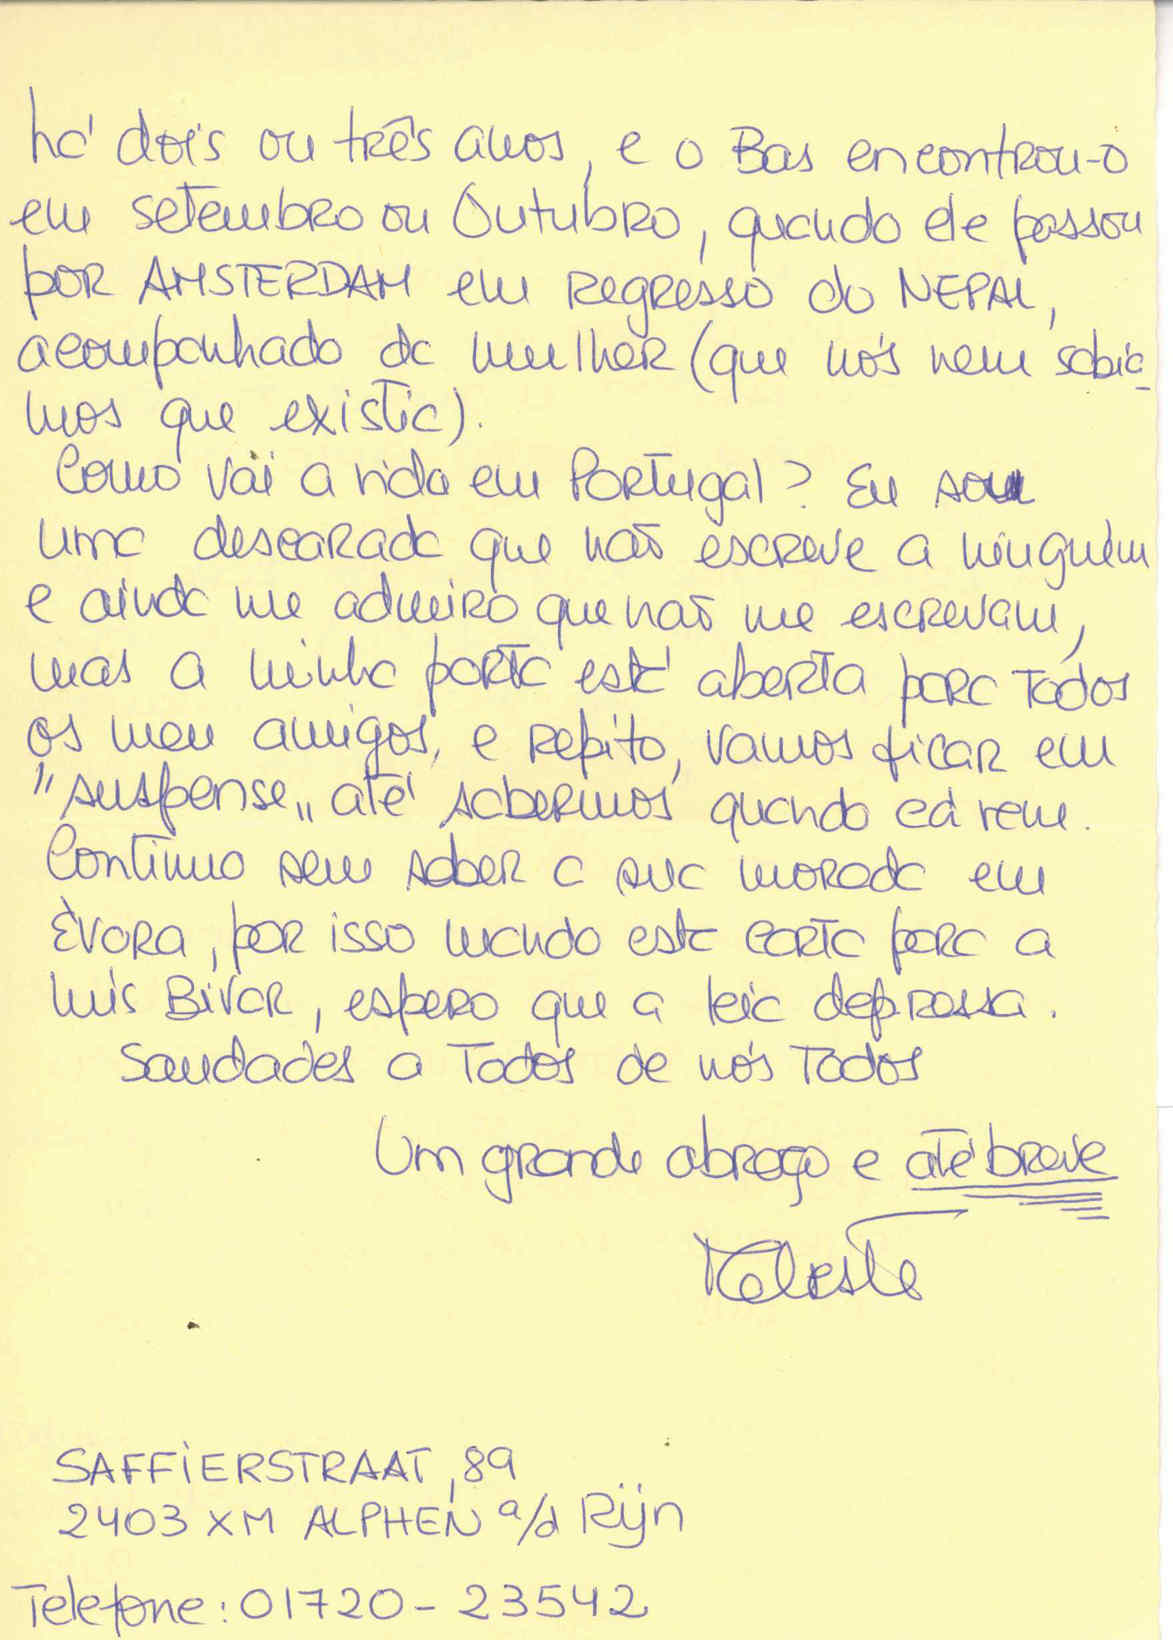 há dois ou três anos, e o Bas encontrou-o
em setembro ou Outubro, quando ele passou
por AMSTERDAM em regresso do NEPAL,
acompanhado da mulher (que nós nem sabía-
mos que existia).
Como vai a vida em Portugal? Eu sou
uma descarada que não escreve a ninguém
e ainda me admiro que não me escrevam,
mas a minha porta está aberta para todos
os meu amigos, e repito, vamos ficar em
"suspense„ até sabermos quando cá vem.
Continuo sem saber a sua morada em
Èvora, por isso mando esta carta para a
Luis Bivar, espero que a leia depressa.
Saudades a Todos de nós Todos
Um grande abraço e até breve
Celeste
SAFFIERSTRAAT, 89
2403 XM ALPHEN a/d Rijn
Telefone: 01720 - 23542